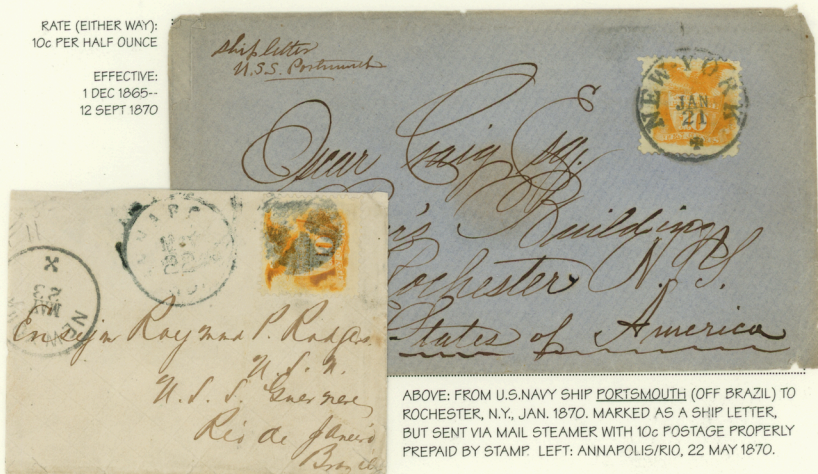 RATE (EITHER WAY):
10c PER HALF OUNCE
EFFECTIVE:
1 DEC 1865--
12 SEPT 1870
Ship letter
U.S.S. Portsmouth
NEW YORK
JAN.
21
Oscar Craig Esq.
Building
Rochester N.Y.
States of America
10
NEW
Ensign Raymond P. Rodgers
U.S.N.
U.S.S. Guerriere
Rio de Janeiro
Brazil
ABOVE: FROM U.S.NAVY SHIP PORTSMOUTH (OFF BRAZIL) TO
ROCHESTER, N.Y., JAN. 1870. MARKED AS A SHIP LETTER,
BUT SENT VIA MAIL STEAMER WITH 10c POSTAGE PROPERLY
PREPAID BY STAMP. LEFT: ANNAPOLIS/RIO, 22 MAY 1870.